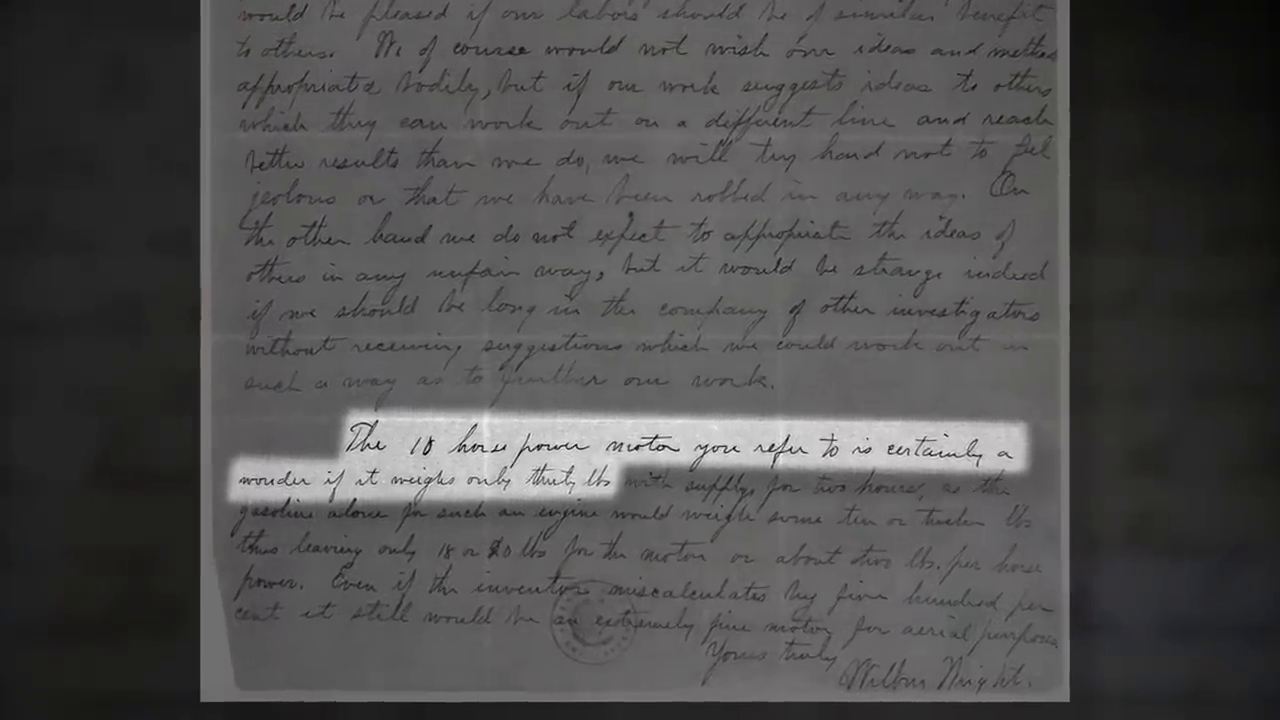 would be pleased if our labors should be of similar benefit
to others. We of course would not wish our ideas and methods
appropriated bodily, but if our work suggests ideas to others
which they can work out on a different line and reach
better results than we do, we will try hard not to feel
jealous or that we have been robbed in any way. On
the other hand we do not expect to appropriate the ideas of
others in any unfair way, but it would be strange indeed
if we should be long in the company of other investigators
without receiving suggestions which we could work out in
such a way as to further our work.
The 10 horse power motor you refer to is certainly a
wonder if it weighs only thirty lbs with supplys for two hours, as the
gasoline alone for such an engine would weigh some ten or twelve lbs
thus leaving only 18 or 20 lbs for the motor or about two lbs. per horse
power. Even if the inventor miscalculates by five hundred per
cent it still would be an extremely fine motor for aerial purposes.
Yours truly
Wilbur Wright.